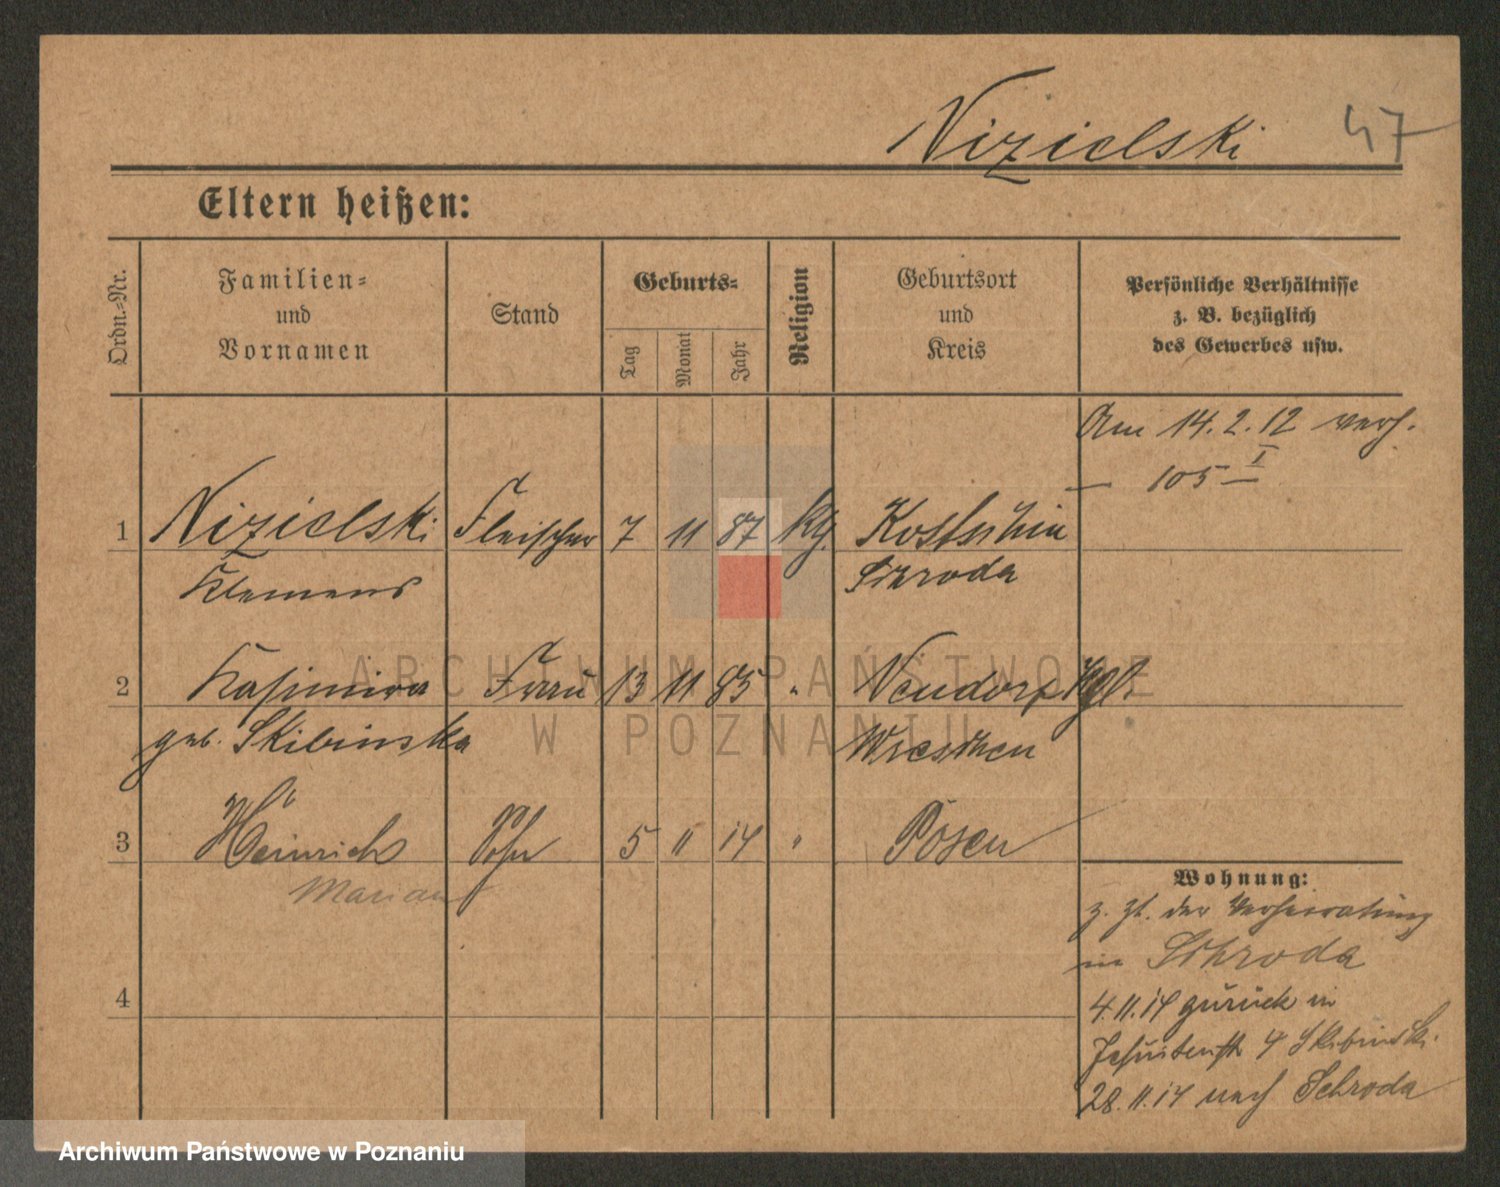 Nizielski 47
Eltern heißen:
Ordn.-Nr.
Familien-
und
Vornamen
Stand
Geburts-
Tag
Monat
Jahr
Religion
Geburtsort
und
Kreis
Persönliche Verhältnisse
z. B. bezüglich
des Gewerbes usw.
Am 14.2.12 verh.
— 105 I —
1 Nizielski Fleischer 7 11 87 kth. Kostschin
Klemens Schroda
2 Kasimira Frau 13 11 85 " Neudorf Kgl.
geb. Skibinska Wreschen
3 Heinrich Sohn 5 11 14 " Posen
Marian
Wohnung:
z. Zt. der Verheiratung
in Schroda
4
4.11.14 zurück in
Jesuitenstr 4 Skibinski
28.11.14 nach Schroda
ARCHIWUM PAŃSTWOWE
W POZNANIU
Archiwum Państwowe w Poznaniu